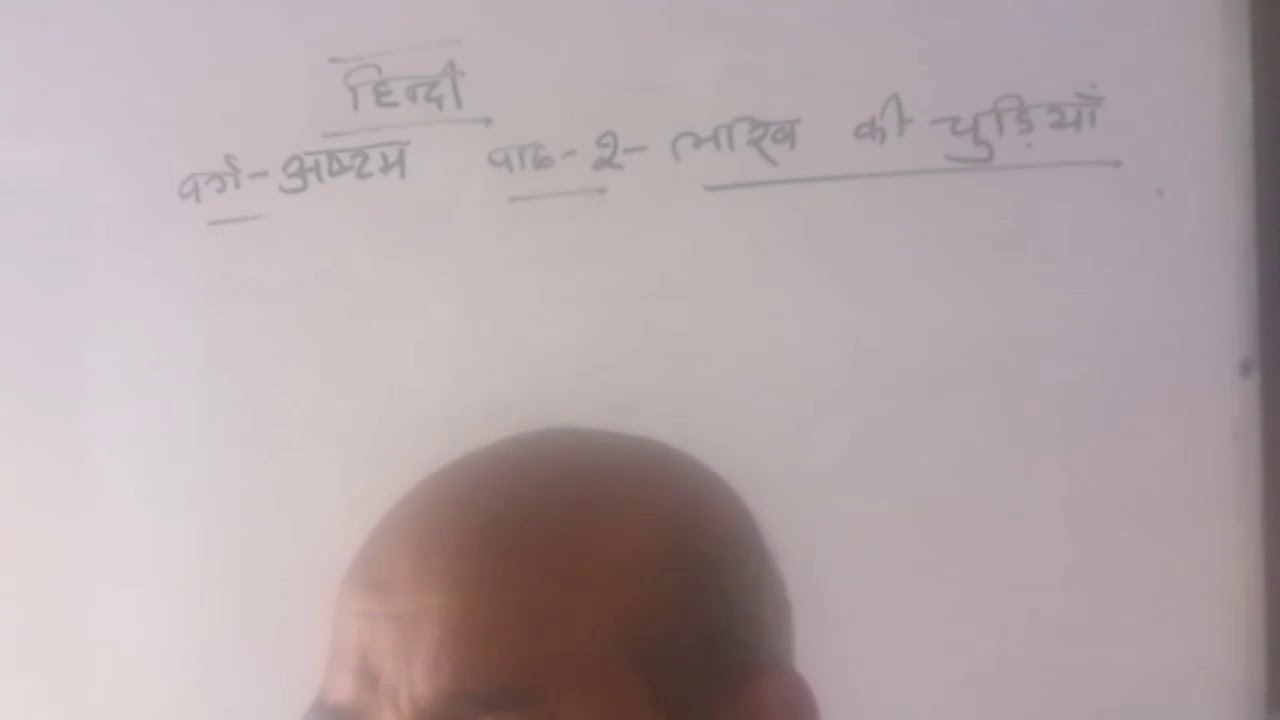 हिन्दी
वर्ग-अष्टम पाठ-2- लाख की चुड़ियाँ